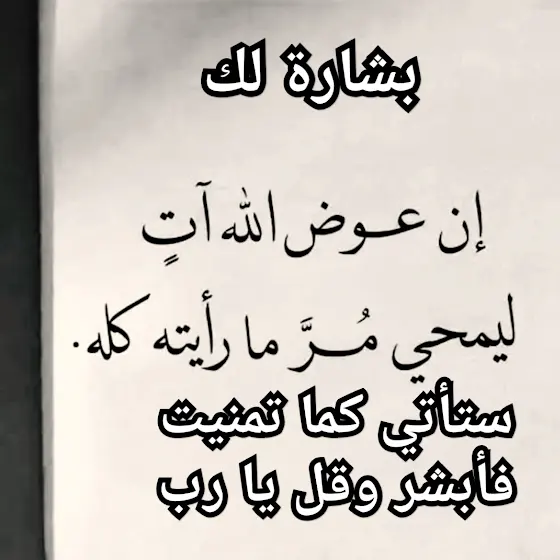 بشارة لك
إن عوض الله آتٍ
ليمحي مُرَّ ما رأيته كله.
ستأتي كما تمنيت
فأبشر وقل يا رب